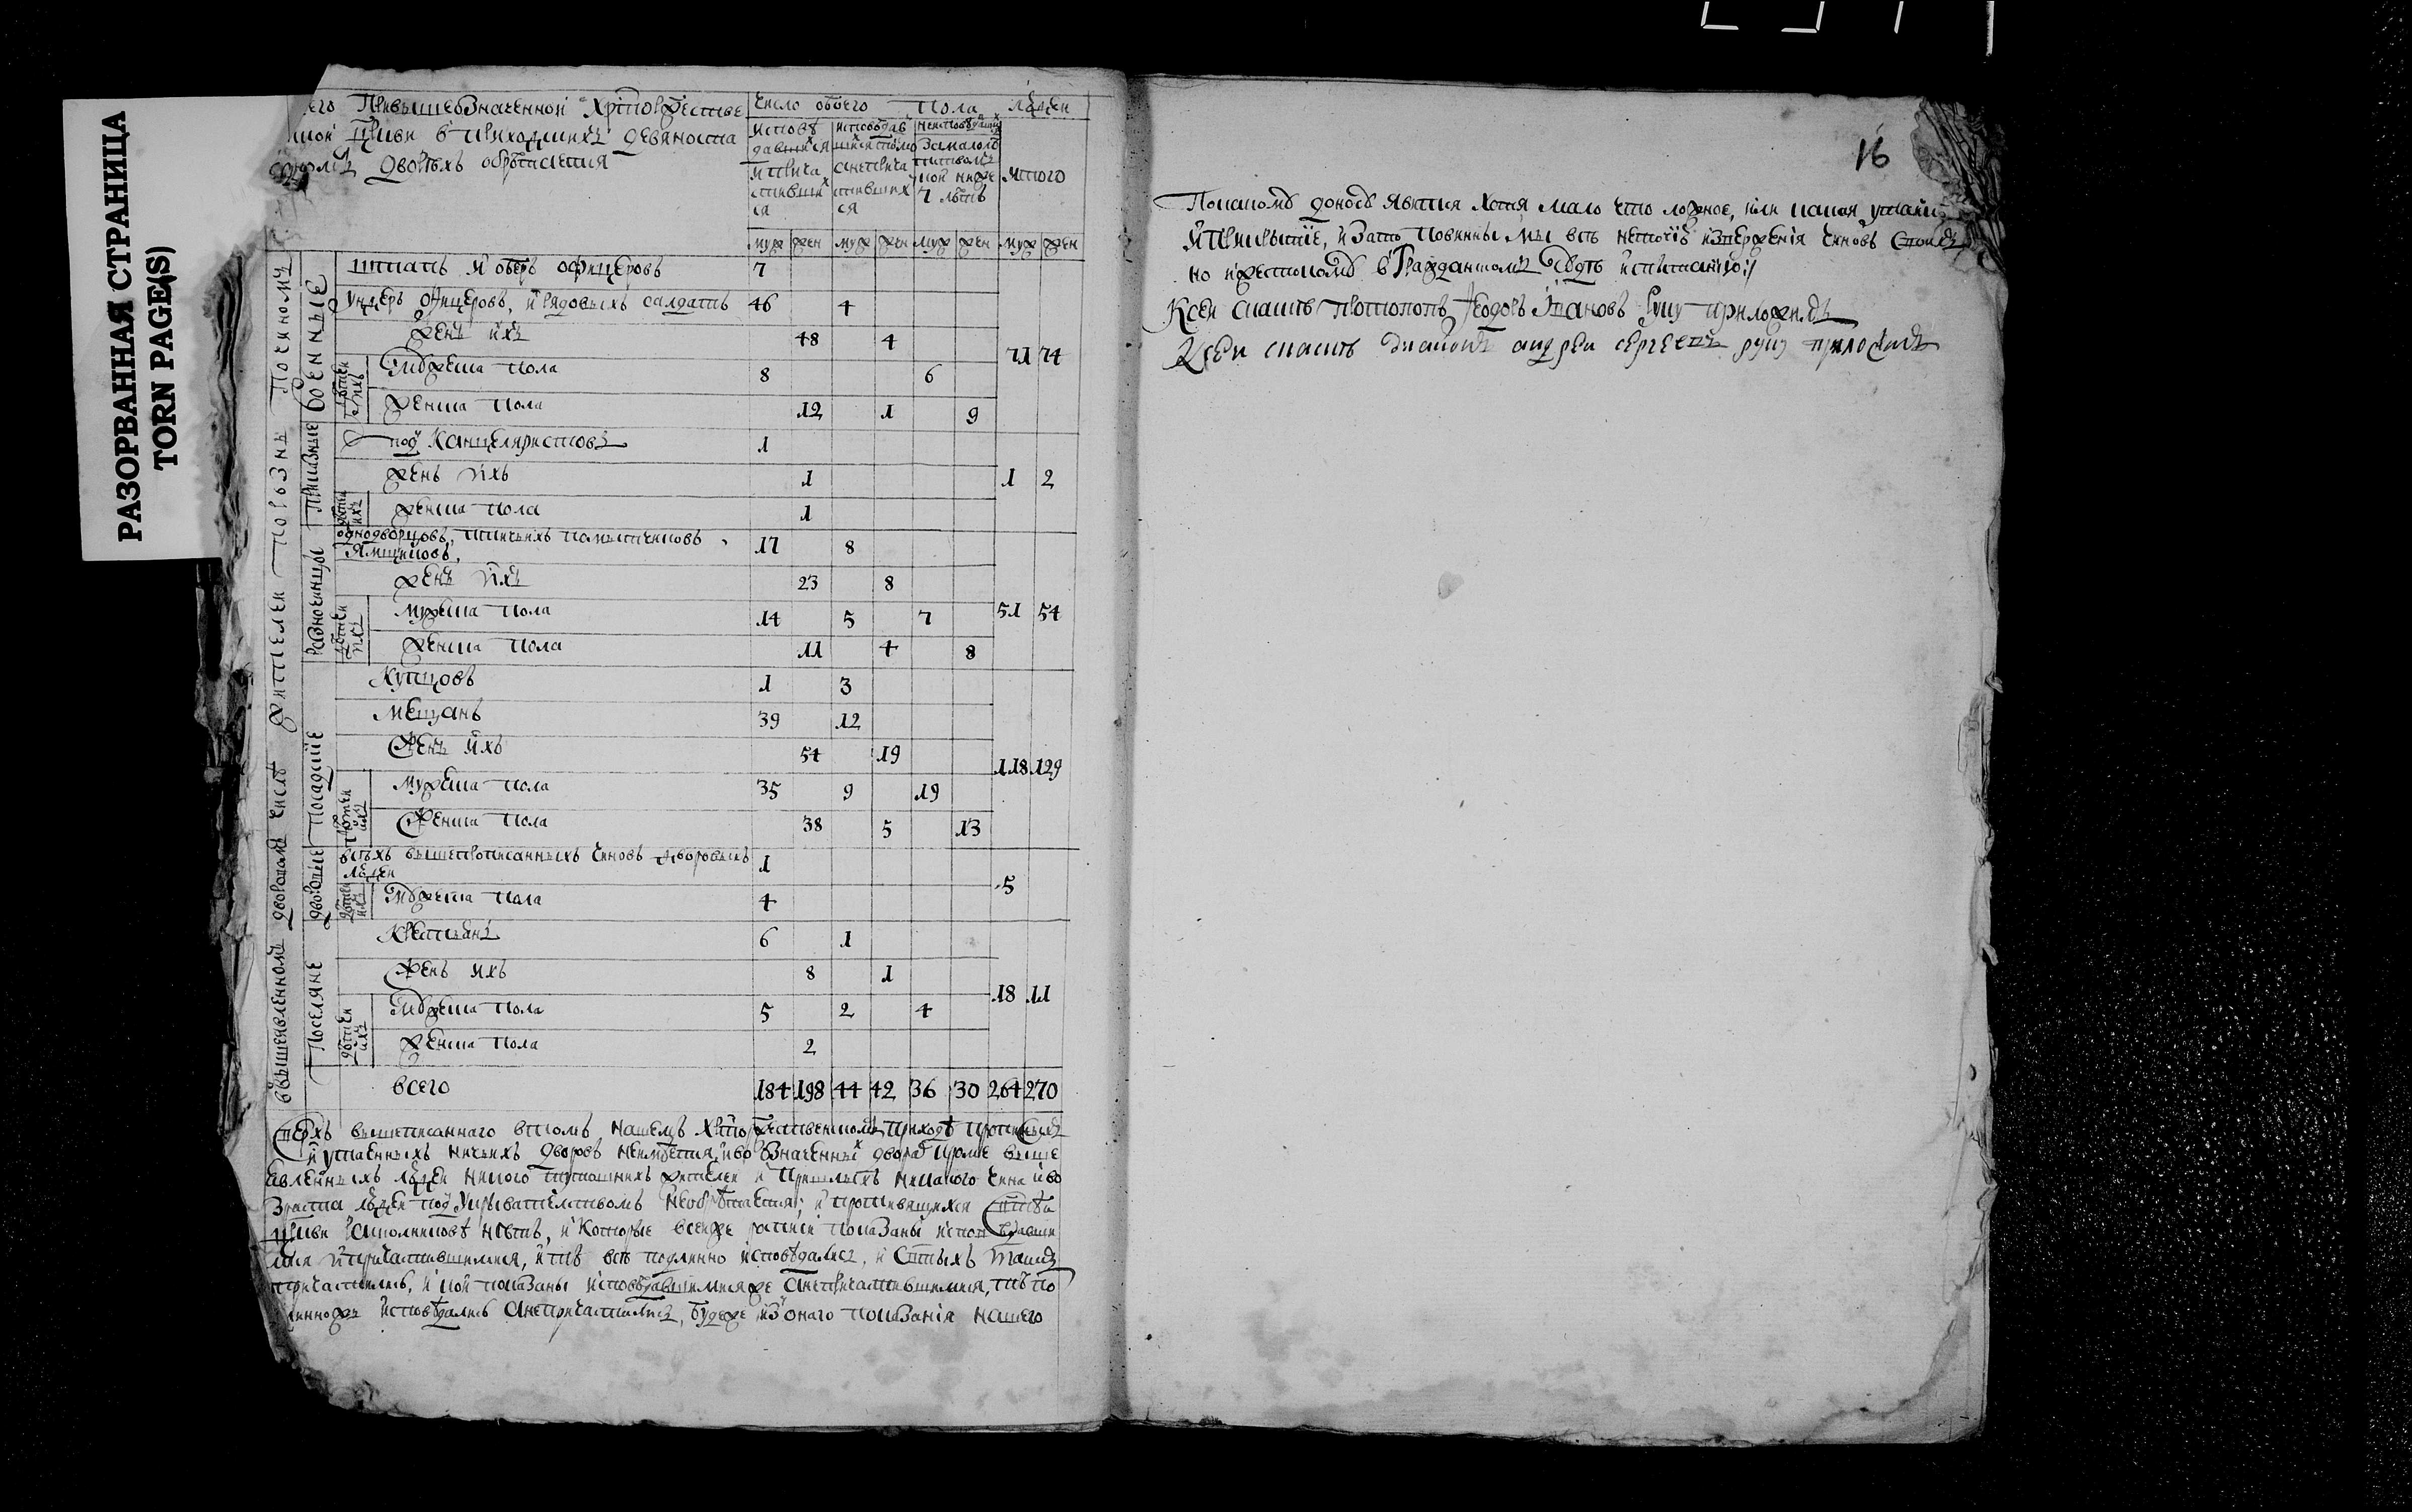 РАЗОРВАННАЯ СТРАНИЦА
TORN PAGE(S)
его Привышеозначенной Христорождестве
нской церкви в приходскихъ девяноста
дворѣхъ обрѣтается
Число обоего пола людей
исповѣдавшихся и причастившихся
исповѣдавшихся токмо а непричастившихся
неисповѣдавшихся за малолѣтствомъ кои ниже 7 лѣтъ
итого
муж жен муж жен муж жен муж жен
ввышеявленномъ дворовомъ числѣ жителей порознь починомъ
военные
штапъ и оберъ офицеровъ 7
ундеръ офицеровъ, и рядовыхъ салдатъ 46 4
женъ ихъ 48 4
71 74
детей ихъ
мужеска пола 8 6
женска пола 12 1 9
Приказные
под Канцеляристовъ 1
женъ ихъ 1
1 2
детей ихъ
женска пола 1
Разночинцы
однодворцовъ, ямщиковъ, 17 8
женъ ихъ 23 8
детей ихъ
мужеска пола 14 5 7
51 54
женска пола 11 4 8
Посадские
Купцовъ 1 3
Мещанъ 39 12
женъ ихъ 54 19
118 129
детей ихъ
мужеска пола 35 9 19
женска пола 38 5 13
дворовые
всѣхъ вышепрописанныхъ чиновъ дворовыхъ людей 1
5
детей ихъ
мужеска пола 4
Поселяне
Крестьянъ 6 1
женъ ихъ 8 1
18 11
детей ихъ
мужеска пола 5 2 4
женска пола 2
всего 184 198 44 42 36 30 264 270
Сверхъ вышеписаннаго втомъ нашемъ Христорождественскомъ приходѣ
и утаенныхъ ничьихъ дворовъ неимѣется, иво означенныхъ дворахъ кроме выше
явленныхъ людей никого тутошнихъ жителей и пришлыхъ никакого чина иво
зраста людей под укрывателствомъ необрѣтается; и противящихся святѣй
церкви раскольниковъ нѣтъ, и Которые всейже росписи показаны исповѣдавши
мися ипричастившимися, и тѣ всѣ подлинно исповѣдались, и Святыхъ таинъ
причастились, и кои показаны исповѣдавшимисяже анепричастившимися, тѣ по
длинножъ исповѣдались анепричастились, будеже изонаго показанія нашего
16
Покакому доносу явится хотя мало что ложное, или какая утайка
и прикрытіе, и зато повинны мы всѣ неточію изверженія чиновъ своихъ
но и жестокому в гражданскомъ судѣ истязанію:/
Ксей скаскѣ протопопъ Ѳеодоръ Ивановъ руку приложилъ
Ксей скаскѣ диаконъ андреи сергеевъ руку приложилъ